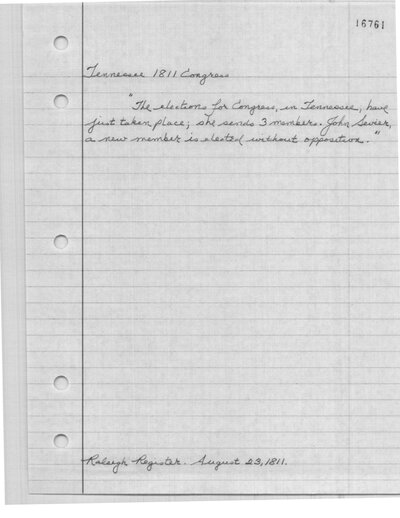 16761
Tennessee 1811 Congress
"The elections for Congress, in Tennessee, have
just taken place; she sends 3 members. John Sevier,
a new member is elected without opposition."
Raleigh Register. August 23, 1811.